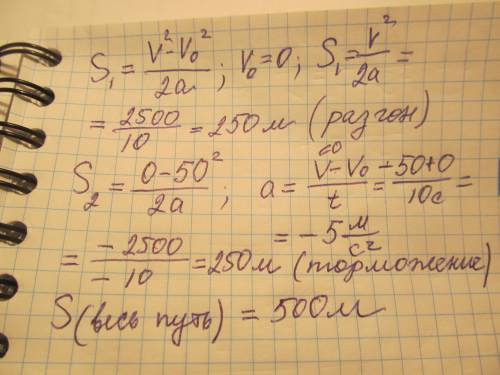 S₁ = (V² - V₀²)/2a ; V₀ = 0 ; S₁ = V²/2a =
= 2500/10 = 250 м (разгон)
S₂ = (0 - 50²)/2a ; a = (V - V₀)/t = (-50+0)/10с =
= -5 м/с²
= -2500/-10 = 250м (торможение)
S (весь путь) = 500м